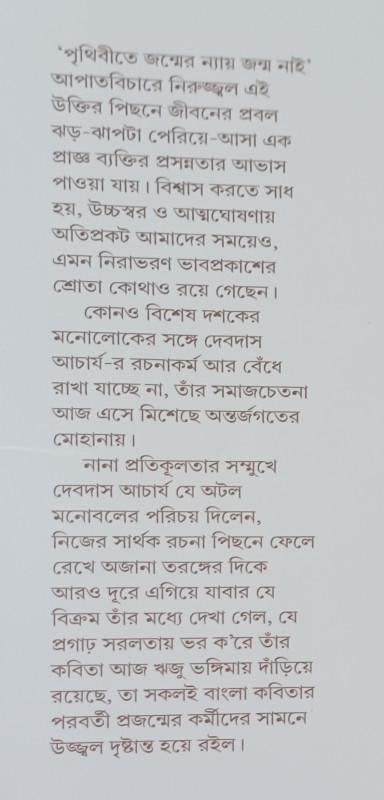 ‘পৃথিবীতে জন্মের ন্যায় জন্ম নাই’
আপাতবিচারে নিরুজ্জ্বল এই
উক্তির পিছনে জীবনের প্রবল
ঝড়-ঝাপটা পেরিয়ে-আসা এক
প্রাজ্ঞ ব্যক্তির প্রসন্নতার আভাস
পাওয়া যায়। বিশ্বাস করতে সাধ
হয়, উচ্চস্বর ও আত্মঘোষণায়
অতিপ্রকট আমাদের সময়েও,
এমন নিরাভরণ ভাবপ্রকাশের
শ্রোতা কোথাও রয়ে গেছেন।
কোনও বিশেষ দশকের
মনোলোকের সঙ্গে দেবদাস
আচার্য-র রচনাকর্ম আর বেঁধে
রাখা যাচ্ছে না, তাঁর সমাজচেতনা
আজ এসে মিশেছে অন্তর্জগতের
মোহানায়।
নানা প্রতিকূলতার সম্মুখে
দেবদাস আচার্য যে অটল
মনোবলের পরিচয় দিলেন,
নিজের সার্থক রচনা পিছনে ফেলে
রেখে অজানা তরঙ্গের দিকে
আরও দূরে এগিয়ে যাবার যে
বিক্রম তাঁর মধ্যে দেখা গেল, যে
প্রগাঢ় সরলতায় ভর ক’রে তাঁর
কবিতা আজ ঋজু ভঙ্গিমায় দাঁড়িয়ে
রয়েছে, তা সকলই বাংলা কবিতার
পরবর্তী প্রজন্মের কর্মীদের সামনে
উজ্জ্বল দৃষ্টান্ত হয়ে রইল।